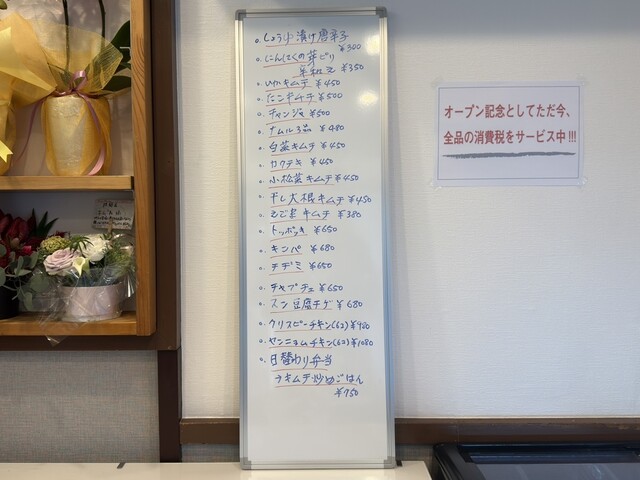 ○しょうゆ漬け唐辛子
¥300
○にんにくの芽ピリ
辛和え ¥350
○いかキムチ ¥450
○たこキムチ ¥500
○チャンジャ ¥500
○ナムル3品 ¥480
○白菜キムチ ¥450
○カクテキ ¥450
○小松菜キムチ ¥450
○干し大根キムチ ¥450
○えごまキムチ ¥380
○トッポッキ ¥650
○キンパ ¥680
○チヂミ ¥650
○チャプチェ ¥650
○スン豆腐チゲ ¥680
○クリスピーチキン(6コ) ¥980
○ヤンニョムチキン(6コ) ¥1080
○日替わり弁当
→キムチ炒めごはん
¥750
オープン記念としてただ今、
全品の消費税をサービス中!!!